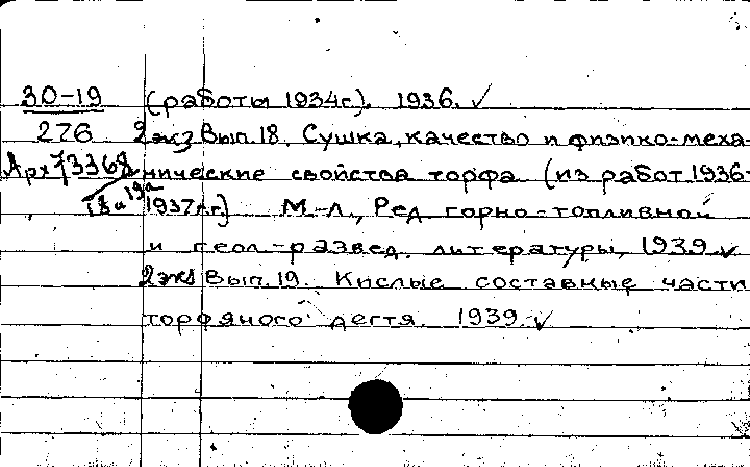 30-19 (работы 1934г). 1936. ✓
276 2экз Вып. 18. Сушка, качество и физико-меха-
Арх 73368 нические свойства торфа (из работ 1936-
18 и 19а 1937г.г.) М.-Л., Ред. горно-топливной
и геол.-развед. литературы, 1939 ✓
2экз Вып. 19. Кислые составные части
торфяного дегтя. 1939 ✓